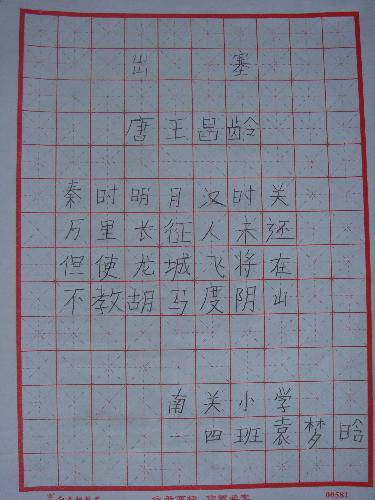 出塞
唐王昌龄
秦时明月汉时关
万里长征人未还
但使龙城飞将在
不教胡马度阴山
南关小学
四班袁梦晗
00581